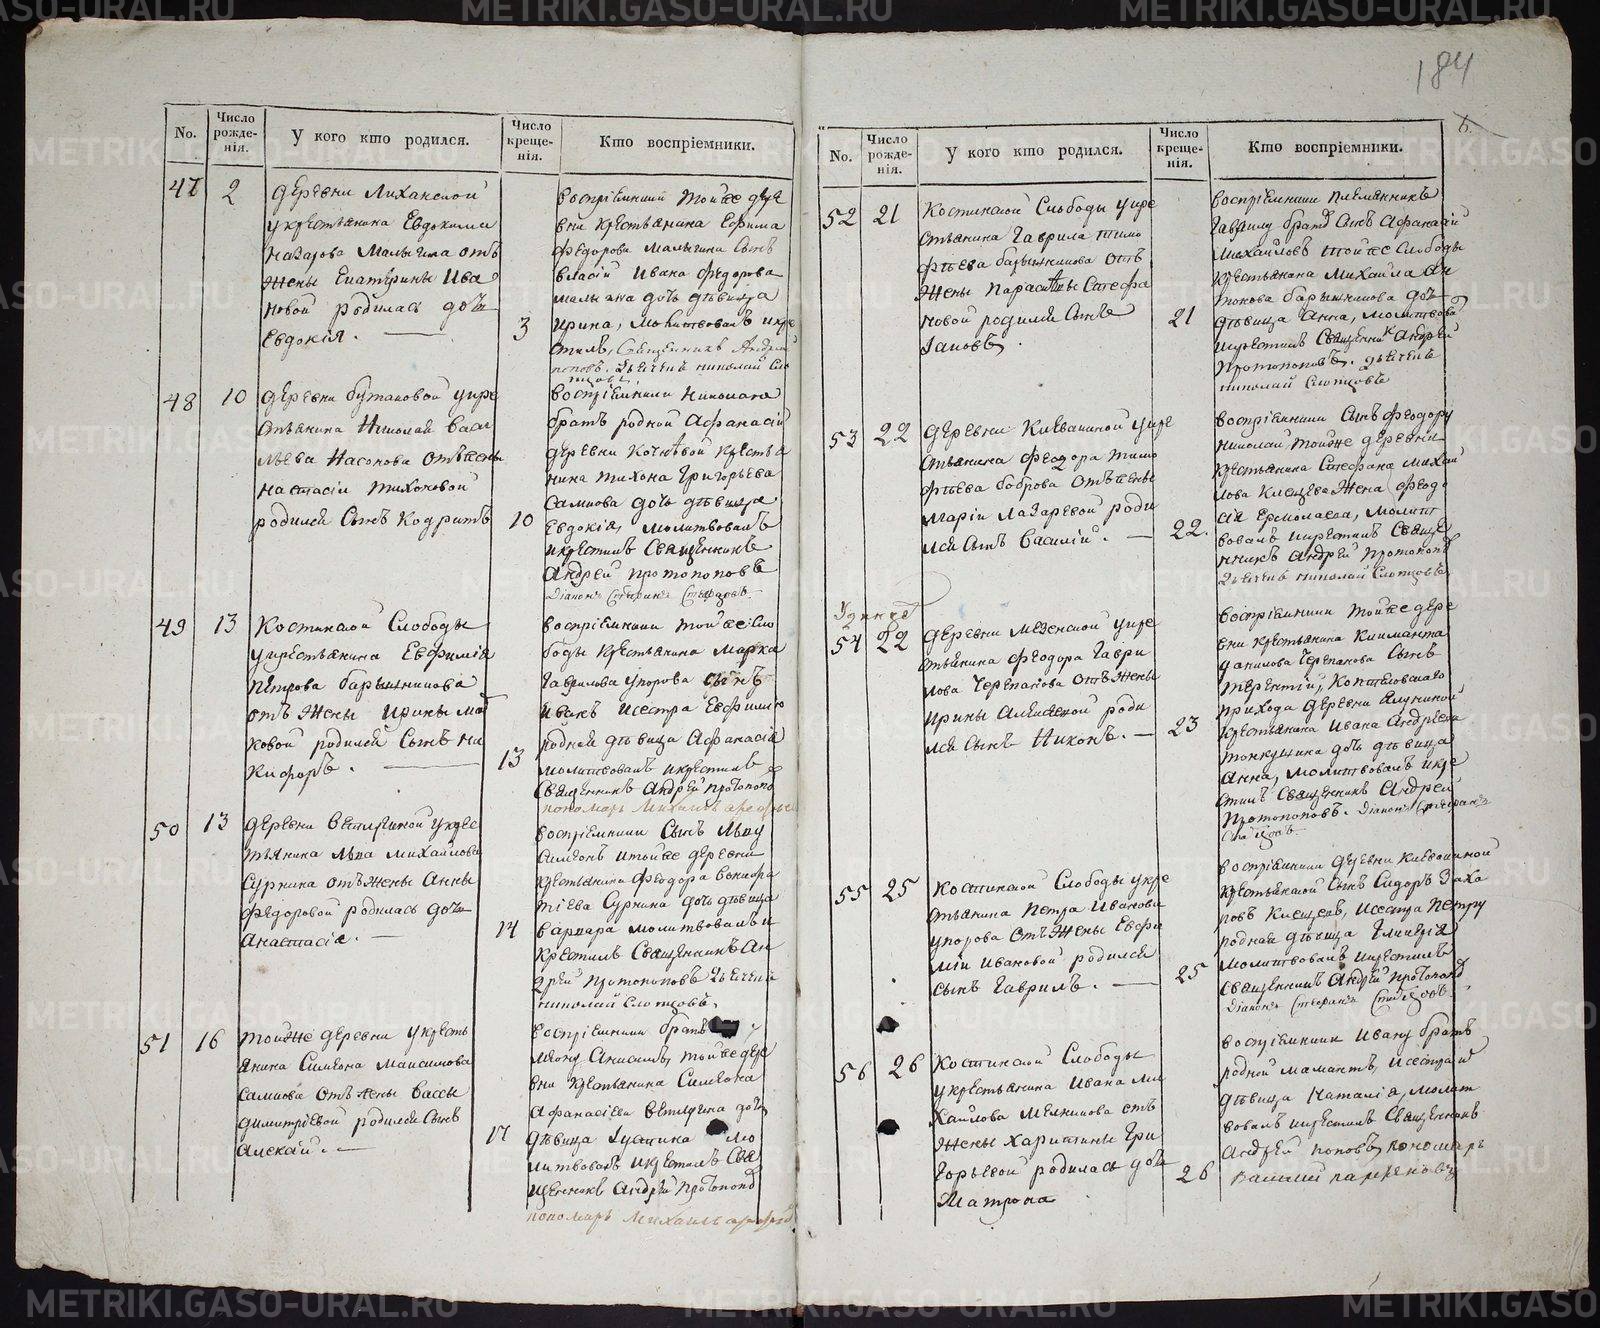 184
No.
Число рожде-нія.
У кого кто родился.
Число креще-нія.
Кто воспріемники.
47
2
деревни Лиханской
у крестьянина Евдокима
Назарова Малыгина отъ
жены Екатерины Ива
новой родилась дочь
Евдокія.
3
воспріемники той же дере
вни крестьянина Ефима
Федорова Малыгина сынъ
Власій Ивана Федорова
Малыгина дочь дѣвица
Ирина, молитвовалъ и кре
стилъ, Священникъ Андрей
поповъ. дьячекъ николай Сло
пцовъ.
48
10
деревни бутаковой у кре
стьянина Николая Васи
льева Насонова отъ жены
Настасіи Тихоновой
родился сынъ Кодратъ
10
воспріемники Николаю
братъ родной Афанасій
деревни Кочневой крестья
нина Тихона Григорьева
Самкова дочь дѣвица
Евдокія, молитвовалъ
и крестилъ Священникъ
Андрей протопоповъ
49
13
Костинской Слободы
у крестьянина Евфимія
Петрова барышникова
отъ жены Ирины
ковой родился сынъ Ни
кифоръ.
13
воспріемники той же Сло
боды крестьянина Марка
Гаврилова Упорова сынъ
Иванъ и сестра Евфимію
родная дѣвица Афанасія
молитвовалъ и крестилъ
Священникъ Андрей протопопо
пономарь Михаилъ
50
13
деревни Ветлугиной у крес
тьянина Льва Михайлова
Суркина отъ жены Анны
Федоровой родилась дочь
Анастасія.
14
воспріемники сынъ Льву
Симеонъ и той же деревни
крестьянина Феодора
Суркина дочь дѣвица
Варвара молитвовалъ и
крестилъ Священникъ Ан
дрей протопоповъ дьячекъ
николай Слопцовъ.
51
16
той же деревни у кресть
янина Симеона Максимова
Самкова отъ жены Вассы
Димитріевой родился сынъ
Алексій.
17
воспріемники братъ
Анисимъ, той же дере
вни крестьянина Симеона
Афанасіева дочь
дѣвица Іустина мо
литвовалъ и крестилъ Свя
щенникъ Андрей протопопо
пономарь Михаилъ
No.
Число рожде-нія.
У кого кто родился.
Число креще-нія.
Кто воспріемники.
52
21
Костинской Слободы у кре
стьянина Гаврила Тимо
фѣева барышникова отъ
жены Парасковьи Стефа
новой родился сынъ
Іаковъ.
21
воспріемники племянникъ
Гаврилу братъ сынъ Афанасій
Михайловъ той же Слободы
крестьянина Михаила Ан
тонова барышникова дочь
дѣвица Анна, молитвова
и крестилъ Священникъ Андрей
Протопоповъ. дьячекъ
николай Слопцовъ
53
22
деревни Клевакиной у кре
стьянина Феодора Тимо
фѣева боброва отъ жены
Маріи Лазаревой роди
лся сынъ Василій.
22.
воспріемники сынъ Феодору
Николай той же деревни
крестьянина Стефана Михай
лова Клещева жена Феодо
сія Ермолаева, молит
вовалъ и крестилъ Свяще
нникъ Андрей протопоповъ
дьячекъ николай Слопцовъ
54
22
деревни Мезенской у кре
стьянина Феодора Гаври
лова Черепанова отъ жены
Ирины Алексѣевой роди
лся сынъ Никонъ.
23
воспріемники той же дере
вни крестьянина Климанта
Данилова Черепанова сынъ
Терентій, Коптеловскаго
прихода деревни
крестьянина Ивана Андреева
дочь дѣвица
Анна, молитвовалъ и кре
стилъ Священникъ Андрей
Протопоповъ.
55
25
Костинской Слободы у кре
стьянина Петра Иванова
Упорова отъ жены Евфи
міи Ивановой родился
сынъ Гаврилъ.
25
воспріемники деревни Клевакиной
крестьянской сынъ Сидоръ Заха
ровъ Клещевъ, и сестра Петру
родная дѣвица Гликерія
молитвовалъ и крестилъ
священникъ Андрей Протопопо
56
26
Костинской Слободы
у крестьянина Ивана Ми
хайлова Мелникова отъ
жены Харитины Гри
горьевой родилась дочь
Матрона
26
воспріемники Ивану братъ
родной Мамантъ, и сестра
дѣвица Наталія, молит
вовалъ и крестилъ Священникъ
Андрей поповъ пономарь